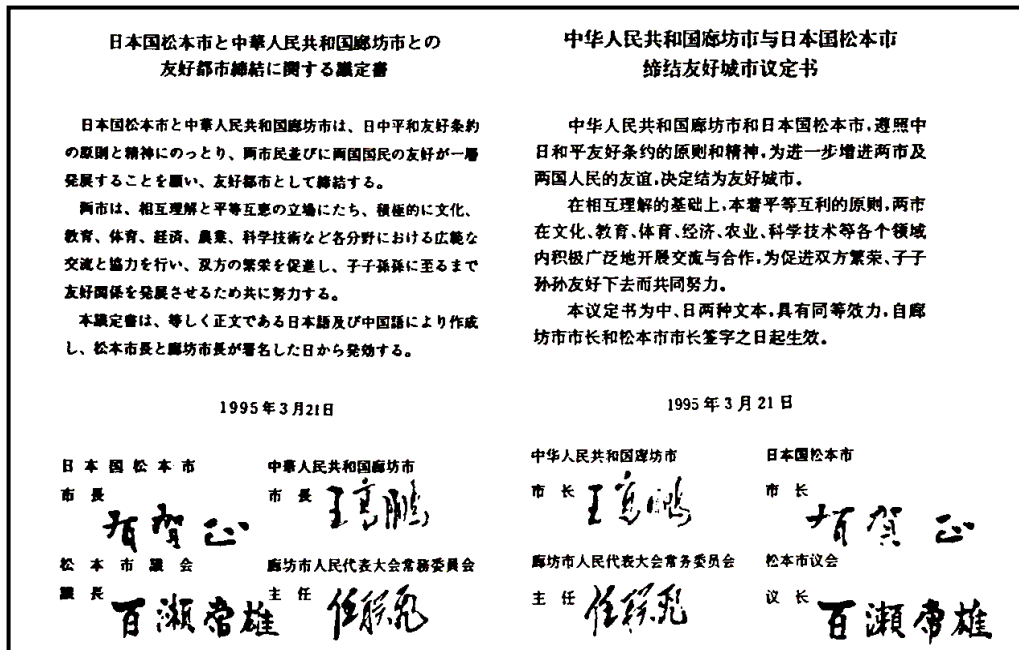 日本国松本市と中華人民共和国廊坊市との
友好都市締結に関する議定書
日本国松本市と中華人民共和国廊坊市は、日中平和友好条約
の原則と精神にのっとり、両市民並びに両国国民の友好が一層
発展することを願い、友好都市として締結する。
両市は、相互理解と平等互恵の立場にたち、積極的に文化、
教育、体育、経済、農業、科学技術など各分野における広範な
交流と協力を行い、双方の繁栄を促進し、子子孫孫に至るまで
友好関係を発展させるため共に努力する。
本議定書は、等しく正文である日本語及び中国語により作成
し、松本市長と廊坊市長が署名した日から発効する。
1995年3月21日
日本国松本市 中華人民共和国廊坊市
市長 有賀正 市長 王富鵬
松本市議会 廊坊市人民代表大会常務委員会
議長 百瀬常雄 主任 任
中华人民共和国廊坊市与日本国松本市
缔结友好城市议定书
中华人民共和国廊坊市和日本国松本市,遵照中
日和平友好条约的原则和精神,为进一步增进两市及
两国人民的友谊,决定结为友好城市。
在相互理解的基础上,本着平等互利的原则,两市
在文化、教育、体育、经济、农业、科学技术等各个领域
内积极广泛地开展交流与合作,为促进双方繁荣、子子
孙孙友好下去而共同努力。
本议定书为中、日两种文本,具有同等效力,自廊
坊市市长和松本市市长签字之日起生效。
1995年3月21日
中华人民共和国廊坊市 日本国松本市
市长 王富鵬 市长 有賀正
廊坊市人民代表大会常务委员会 松本市议会
主任 任 议长 百瀬常雄